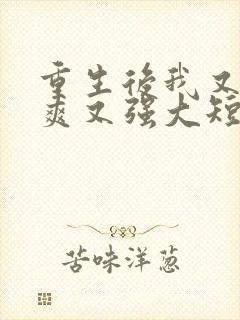 重生後我又
爽又强大短
苦味洋葱